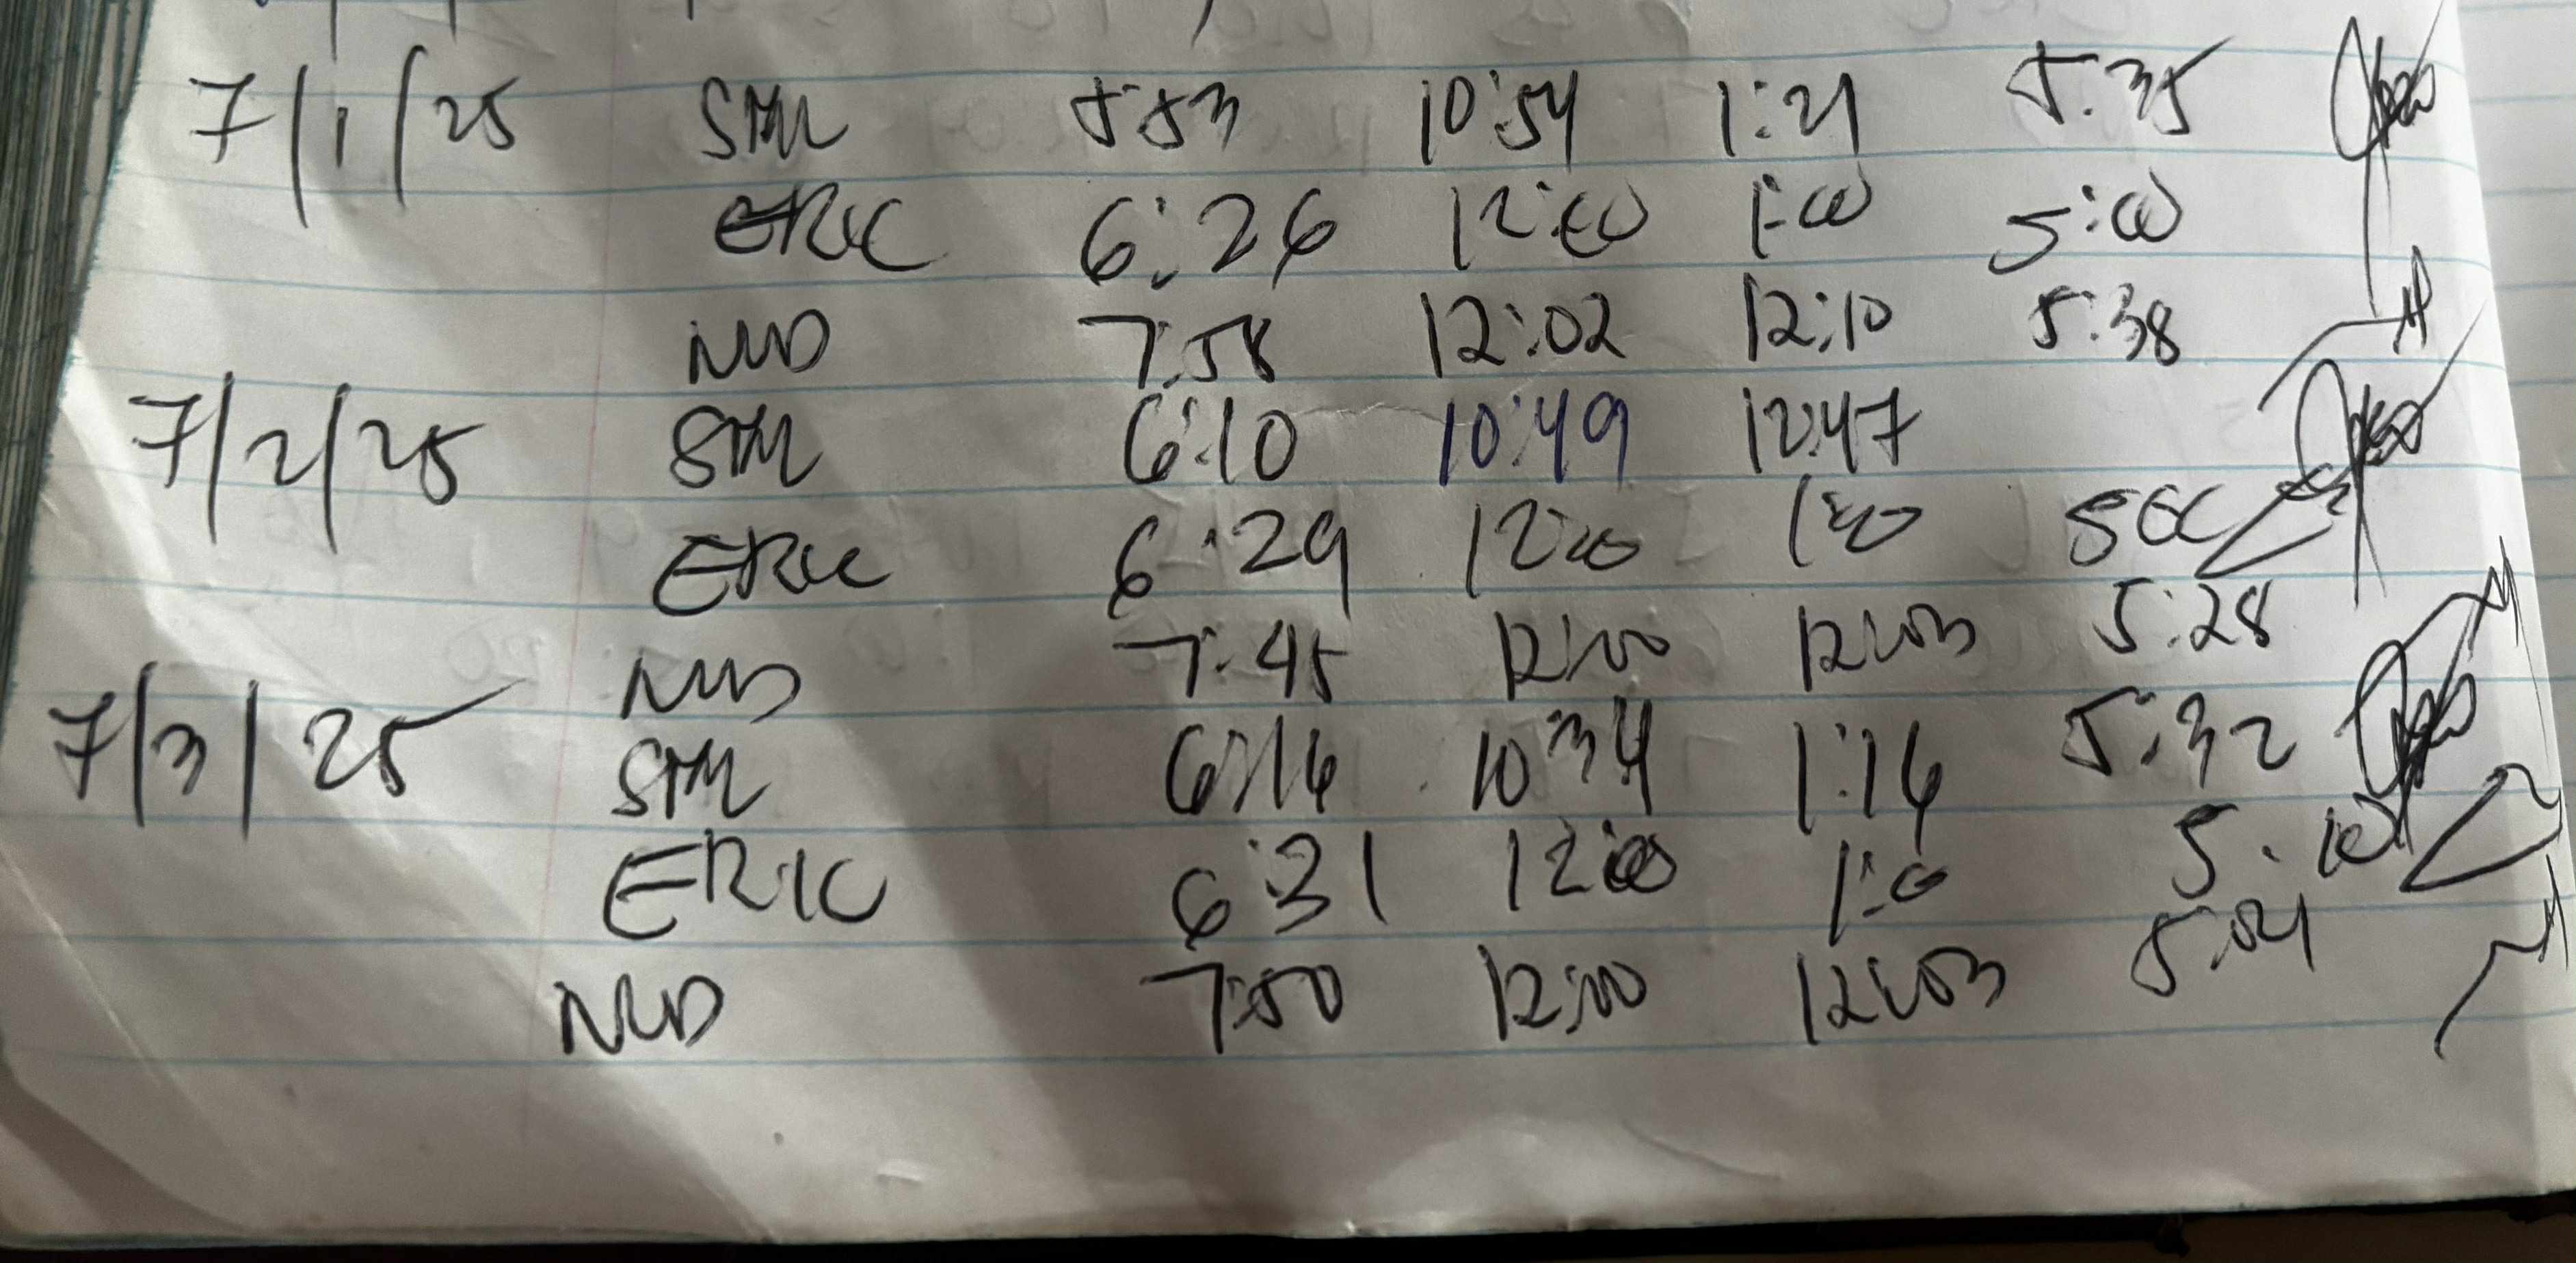 7/1/25 SML 5:53 10:54 1:21 5:35
ERIC 6:26 12:00 1:00 5:00
NUD 7:58 12:02 12:10 5:38
7/2/25 SML 6:10 10:49 12:47
ERIC 6:29 12:00 1:00
NUD 7:45 12:00 12:03 5:28
7/3/25 SML 6:16 10:34 1:16 5:32
ERIC 6:31 12:00 1:00 5:10
NUD 7:50 12:00 12:03 5:04